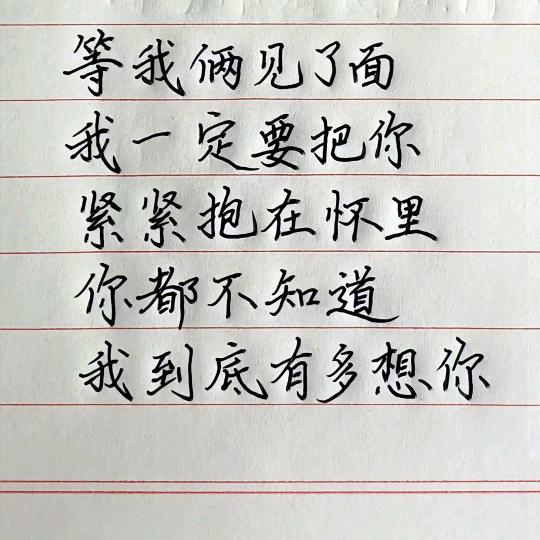 等我俩见了面
我一定要把你
紧紧抱在怀里
你都不知道
我到底有多想你